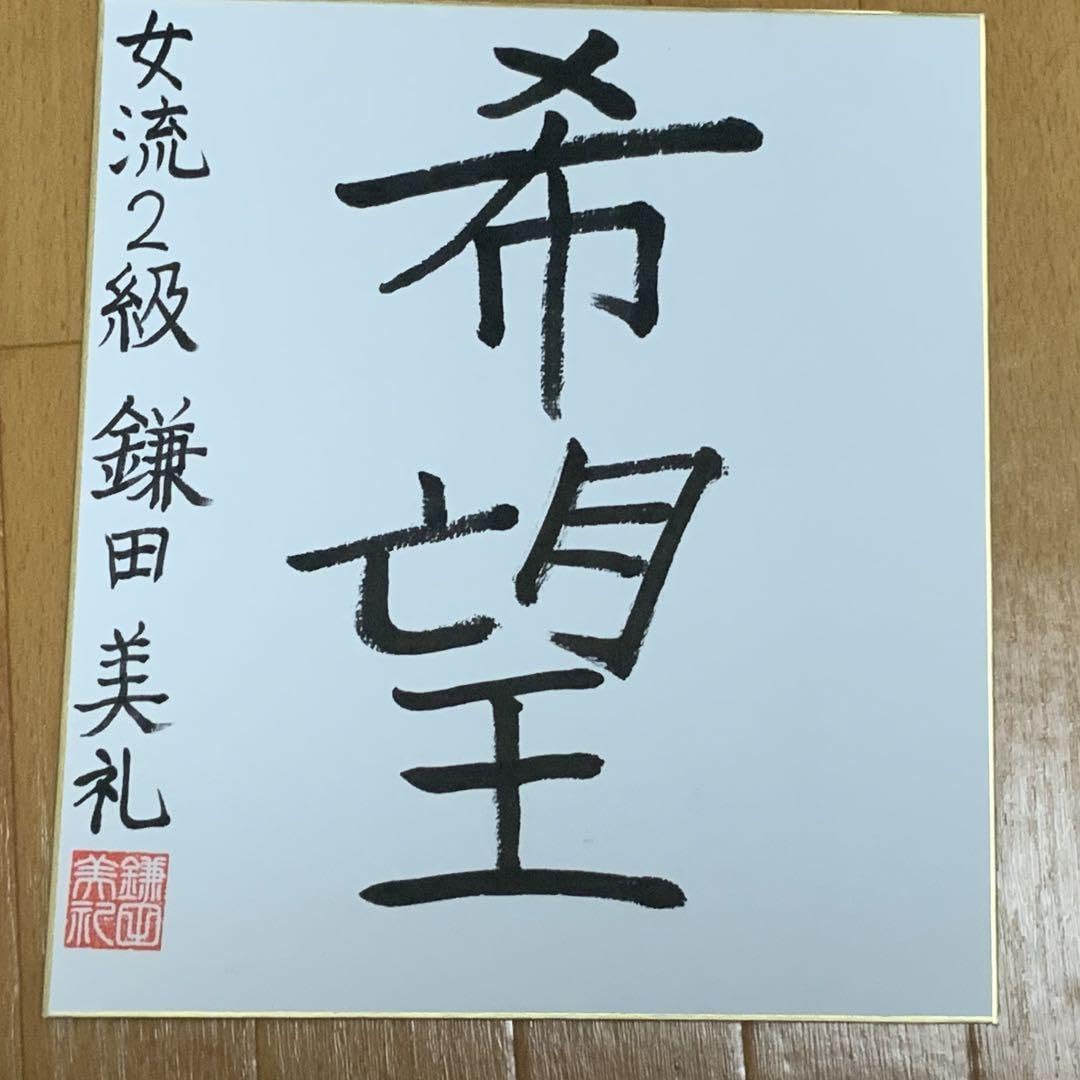 希望
女流2級 鎌田美礼
鎌田美礼